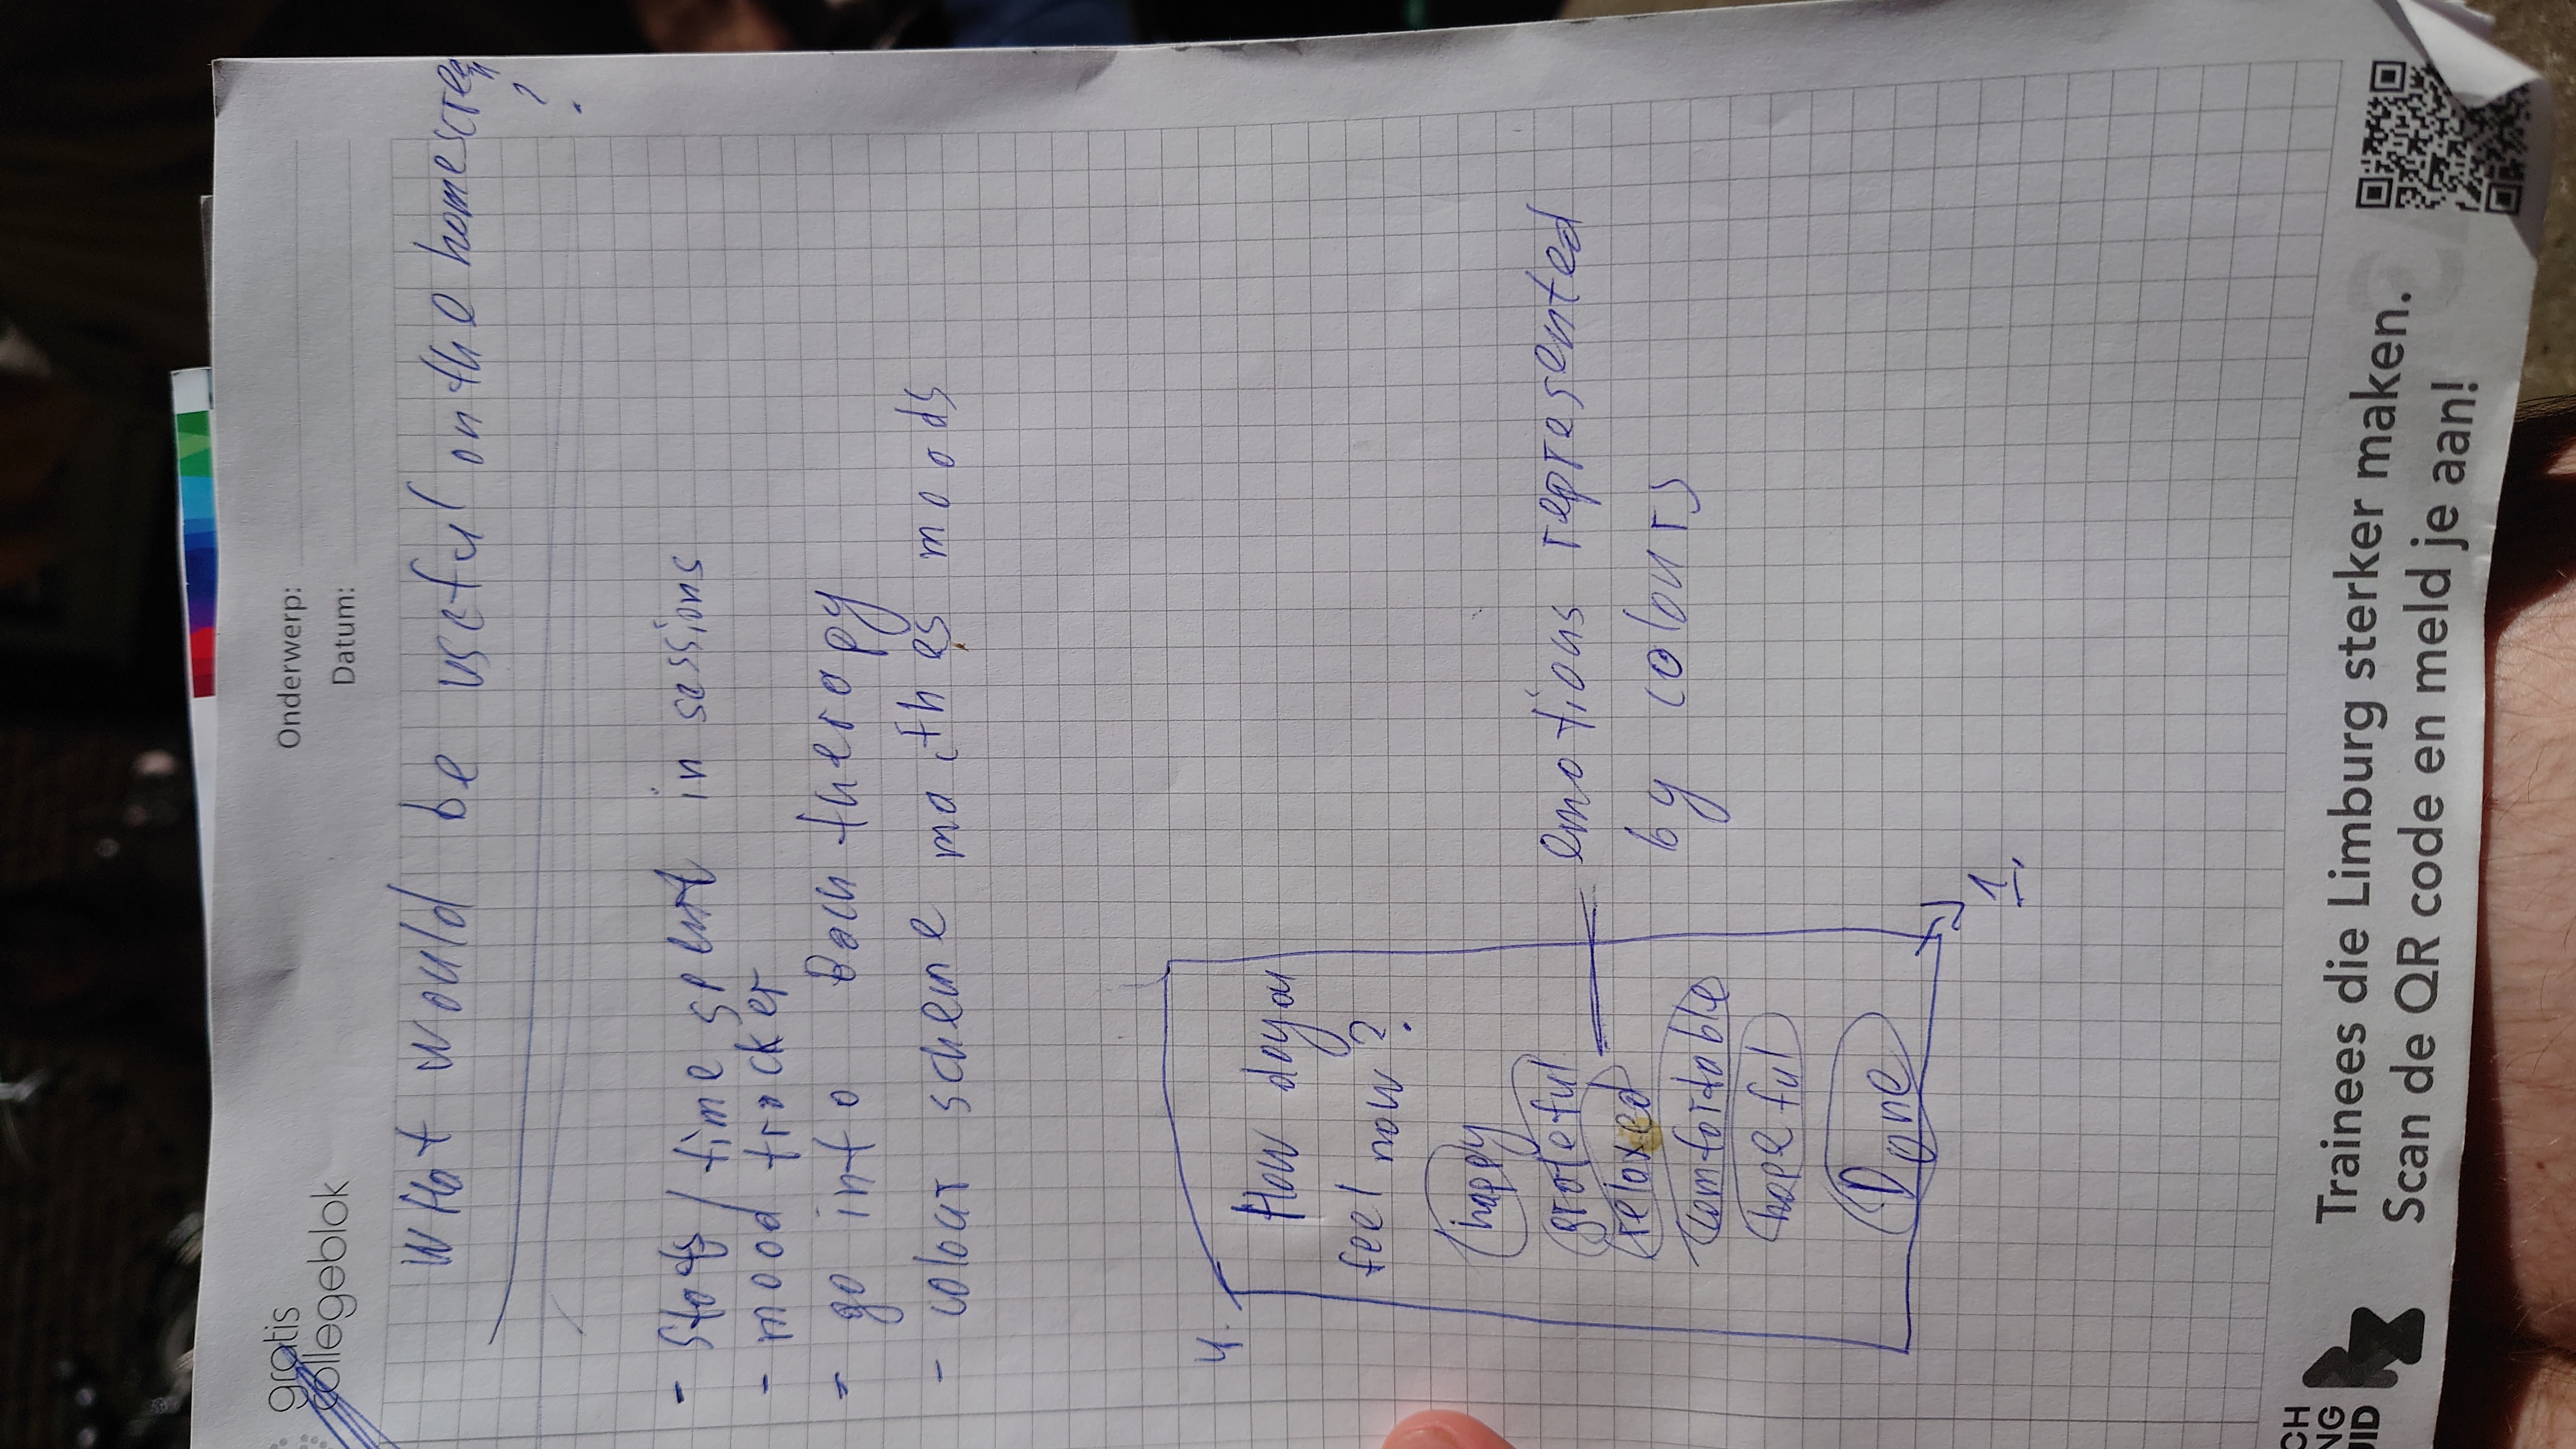 gratis
collegeblok
Onderwerp:
Datum:
WHat would be useful on the homescreen
?
- Stats / time spent in sessions
- mood tracker
- go into Bach therapy
- colour scheme macthes moods
4.
How do you
feel now?
happy
grateful
relaxed
comfortable
hopeful
Done
emotions represented
by colours
1.
CH
NG
UID
Trainees die Limburg sterker maken.
Scan de QR code en meld je aan!